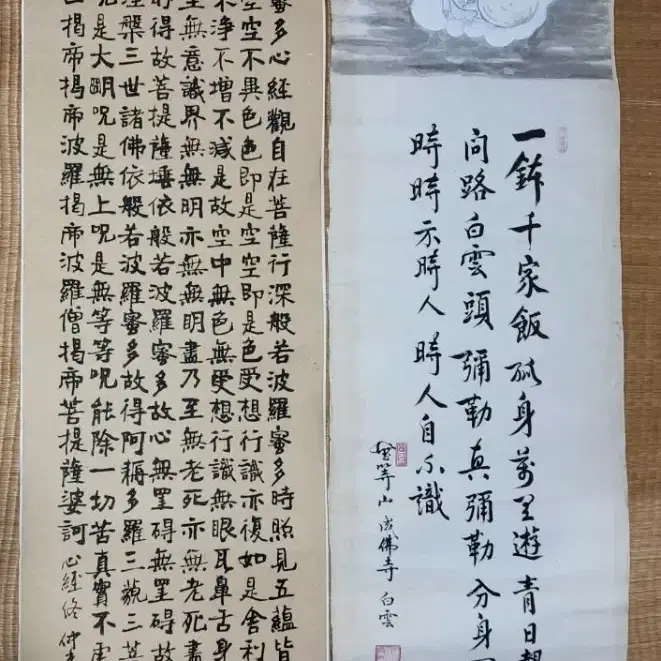 一鉢千家飯孤身萬里遊青目覩
問路白雲頭彌勒真彌勒分身
時時示時人時人自不識
無等山成佛寺白雲
蜜多心經觀自在菩薩行深般若波羅蜜多時照見五蘊皆
空空不異色色即是空空即是色受想行識亦復如是舍利
不淨不增不減是故空中無色無受想行識無眼耳鼻舌身
至無意識界無無明亦無無明盡乃至無老死亦無老死盡
得故菩提薩埵依般若波羅蜜多故心無罣礙無罣礙故
涅槃三世諸佛依般若波羅蜜多故得阿耨多羅三藐三菩
咒是大明咒是無上咒是無等等咒能除一切苦真實不虛
揭帝揭帝波羅揭帝波羅僧揭帝菩提薩婆訶心經終仲